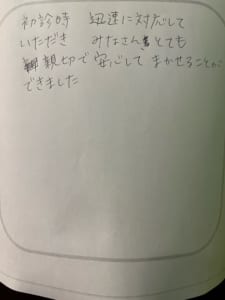 初診時 迅速に対応して
いただき みなさんとても
親切で安心して まかせることが
できました